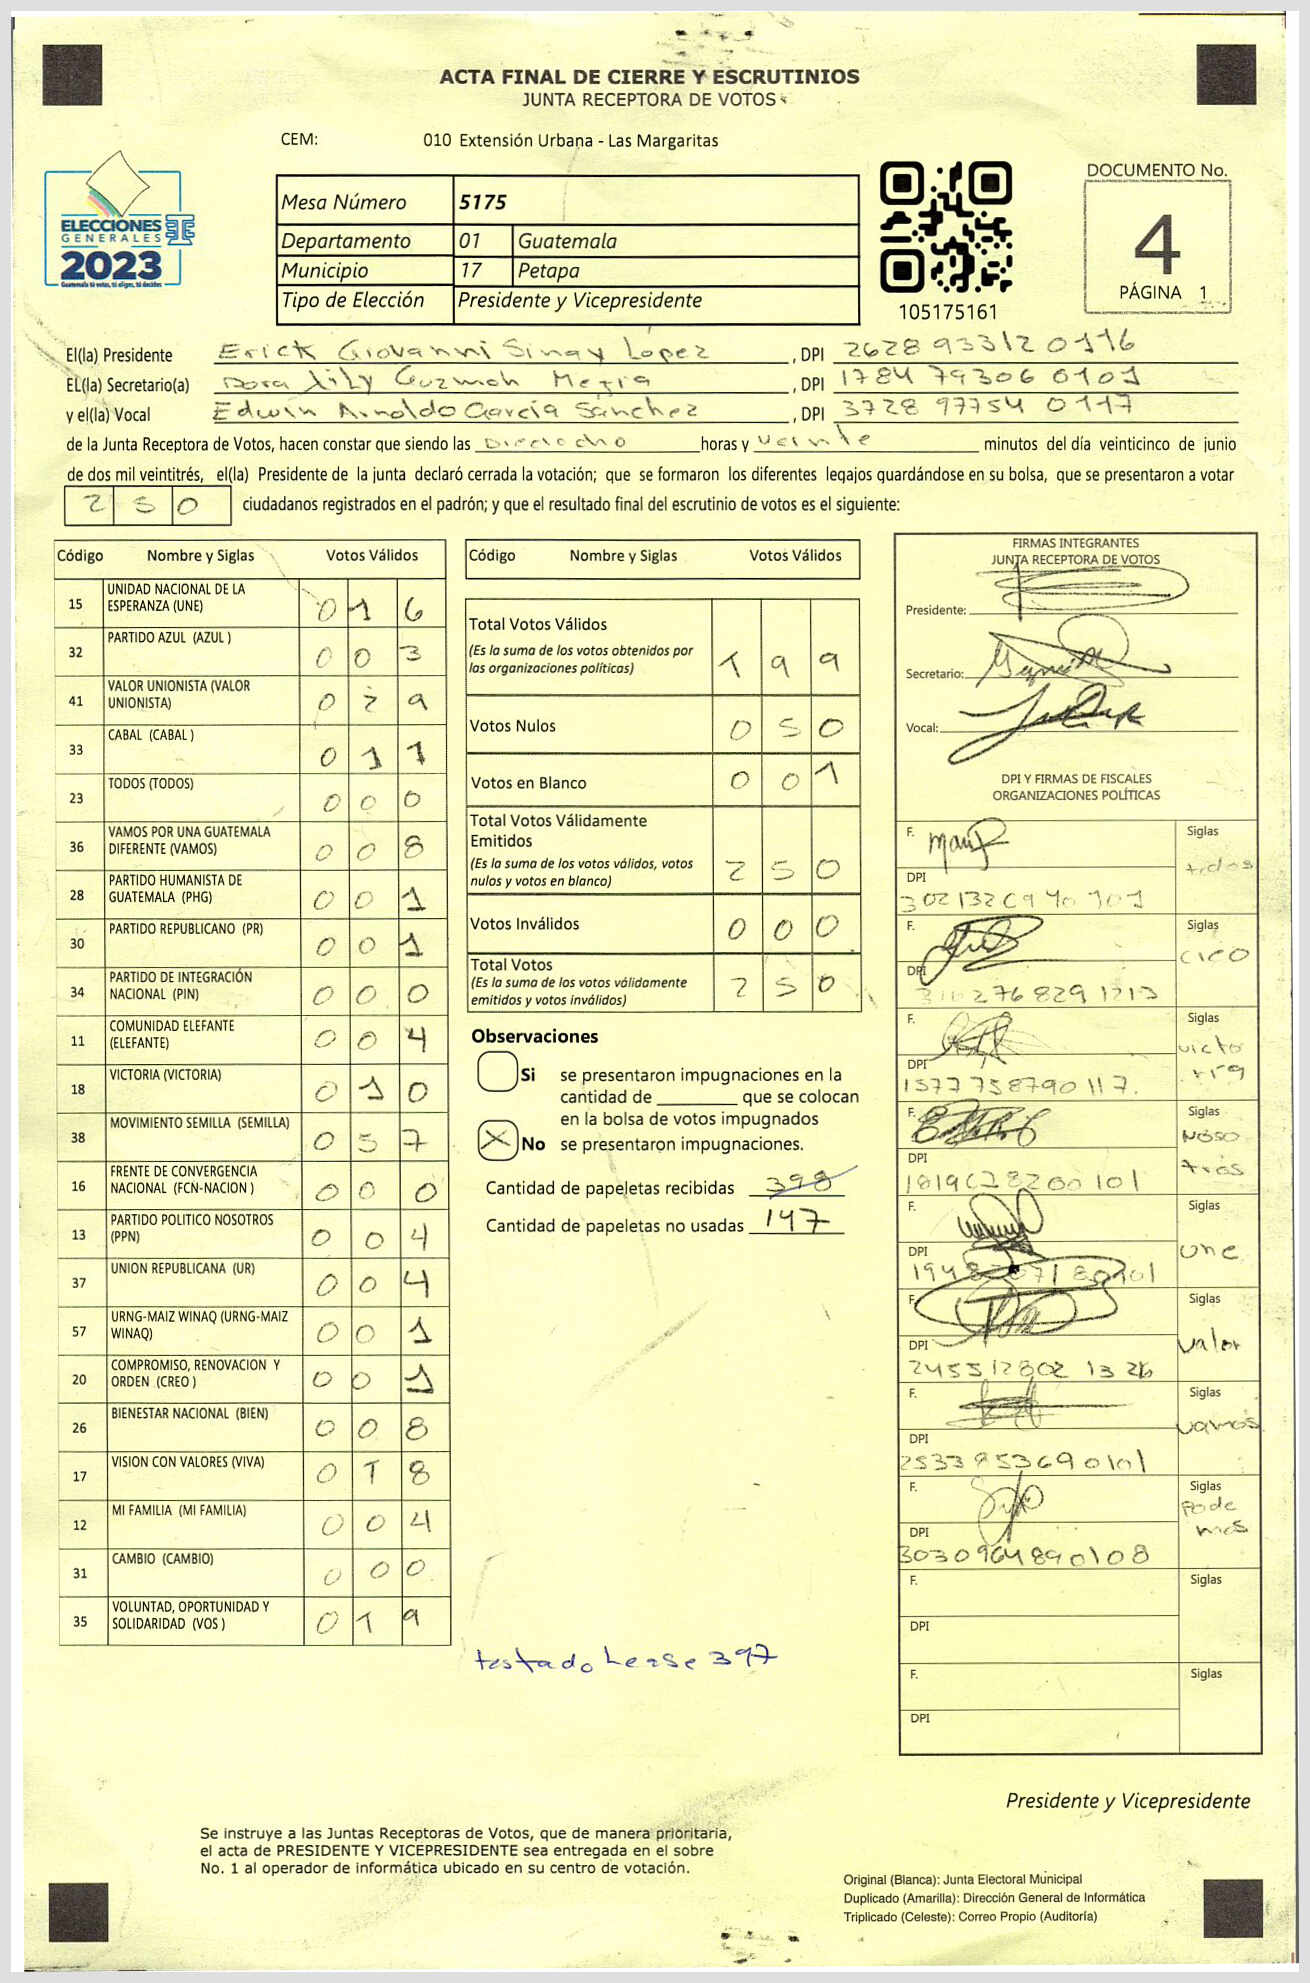 ACTA FINAL DE CIERRE Y ESCRUTINIOS
JUNTA RECEPTORA DE VOTOS
CEM: 010 Extensión Urbana - Las Margaritas
ELECCIONES
GENERALES
2023
Guatemala tú votas, tú eliges, tú decides
Mesa Número 5175
Departamento 01 Guatemala
Municipio 17 Petapa
Tipo de Elección Presidente y Vicepresidente
105175161
DOCUMENTO No.
4
PÁGINA 1
El(la) Presidente Erick Giovanni Sinay Lopez , DPI 2628 93312 0116
EL(la) Secretario(a) Dora Lily Guzmán Mejia , DPI 1784 79306 0101
y el(la) Vocal Edwin Arnoldo García Sánchez , DPI 3728 97754 0117
de la Junta Receptora de Votos, hacen constar que siendo las Dieciocho horas y veinte minutos del día veinticinco de junio
de dos mil veintitrés, el(la) Presidente de la junta declaró cerrada la votación; que se formaron los diferentes legajos guardándose en su bolsa, que se presentaron a votar
250 ciudadanos registrados en el padrón; y que el resultado final del escrutinio de votos es el siguiente:
Código Nombre y Siglas Votos Válidos
15 UNIDAD NACIONAL DE LA ESPERANZA (UNE) 016
32 PARTIDO AZUL (AZUL ) 003
41 VALOR UNIONISTA (VALOR UNIONISTA) 029
33 CABAL (CABAL ) 011
23 TODOS (TODOS) 000
36 VAMOS POR UNA GUATEMALA DIFERENTE (VAMOS) 008
28 PARTIDO HUMANISTA DE GUATEMALA (PHG) 001
30 PARTIDO REPUBLICANO (PR) 001
34 PARTIDO DE INTEGRACIÓN NACIONAL (PIN) 000
11 COMUNIDAD ELEFANTE (ELEFANTE) 004
18 VICTORIA (VICTORIA) 010
38 MOVIMIENTO SEMILLA (SEMILLA) 057
16 FRENTE DE CONVERGENCIA NACIONAL (FCN-NACION ) 000
13 PARTIDO POLITICO NOSOTROS (PPN) 004
37 UNION REPUBLICANA (UR) 004
57 URNG-MAIZ WINAQ (URNG-MAIZ WINAQ) 001
20 COMPROMISO, RENOVACION Y ORDEN (CREO ) 001
26 BIENESTAR NACIONAL (BIEN) 008
17 VISION CON VALORES (VIVA) 018
12 MI FAMILIA (MI FAMILIA) 004
31 CAMBIO (CAMBIO) 000
35 VOLUNTAD, OPORTUNIDAD Y SOLIDARIDAD (VOS ) 019
Código Nombre y Siglas Votos Válidos
Total Votos Válidos
(Es la suma de los votos obtenidos por las organizaciones políticas) 199
Votos Nulos 050
Votos en Blanco 001
Total Votos Válidamente Emitidos
(Es la suma de los votos válidos, votos nulos y votos en blanco) 250
Votos Inválidos 000
Total Votos
(Es la suma de los votos válidamente emitidos y votos inválidos) 250
Observaciones
Si se presentaron impugnaciones en la
cantidad de ________ que se colocan
en la bolsa de votos impugnados
X No se presentaron impugnaciones.
Cantidad de papeletas recibidas 398
Cantidad de papeletas no usadas 147
testado Lease 397
FIRMAS INTEGRANTES
JUNTA RECEPTORA DE VOTOS
Presidente:
Secretario:
Vocal:
DPI Y FIRMAS DE FISCALES
ORGANIZACIONES POLÍTICAS
F. Siglas todos
DPI
F. Siglas creo
DPI
F. Siglas victo
rra
DPI 1577758790117.
F. Siglas Noso
tros
DPI
F. Siglas une
DPI
F. Siglas valor
DPI 245512802 1326
F. Siglas vamos
DPI 2533953690101
F. Siglas Pode
mos
DPI 3030964890108
F. Siglas
DPI
F. Siglas
DPI
Presidente y Vicepresidente
Se instruye a las Juntas Receptoras de Votos, que de manera prioritaria,
el acta de PRESIDENTE Y VICEPRESIDENTE sea entregada en el sobre
No. 1 al operador de informática ubicado en su centro de votación.
Original (Blanca): Junta Electoral Municipal
Duplicado (Amarilla): Dirección General de Informática
Triplicado (Celeste): Correo Propio (Auditoría)